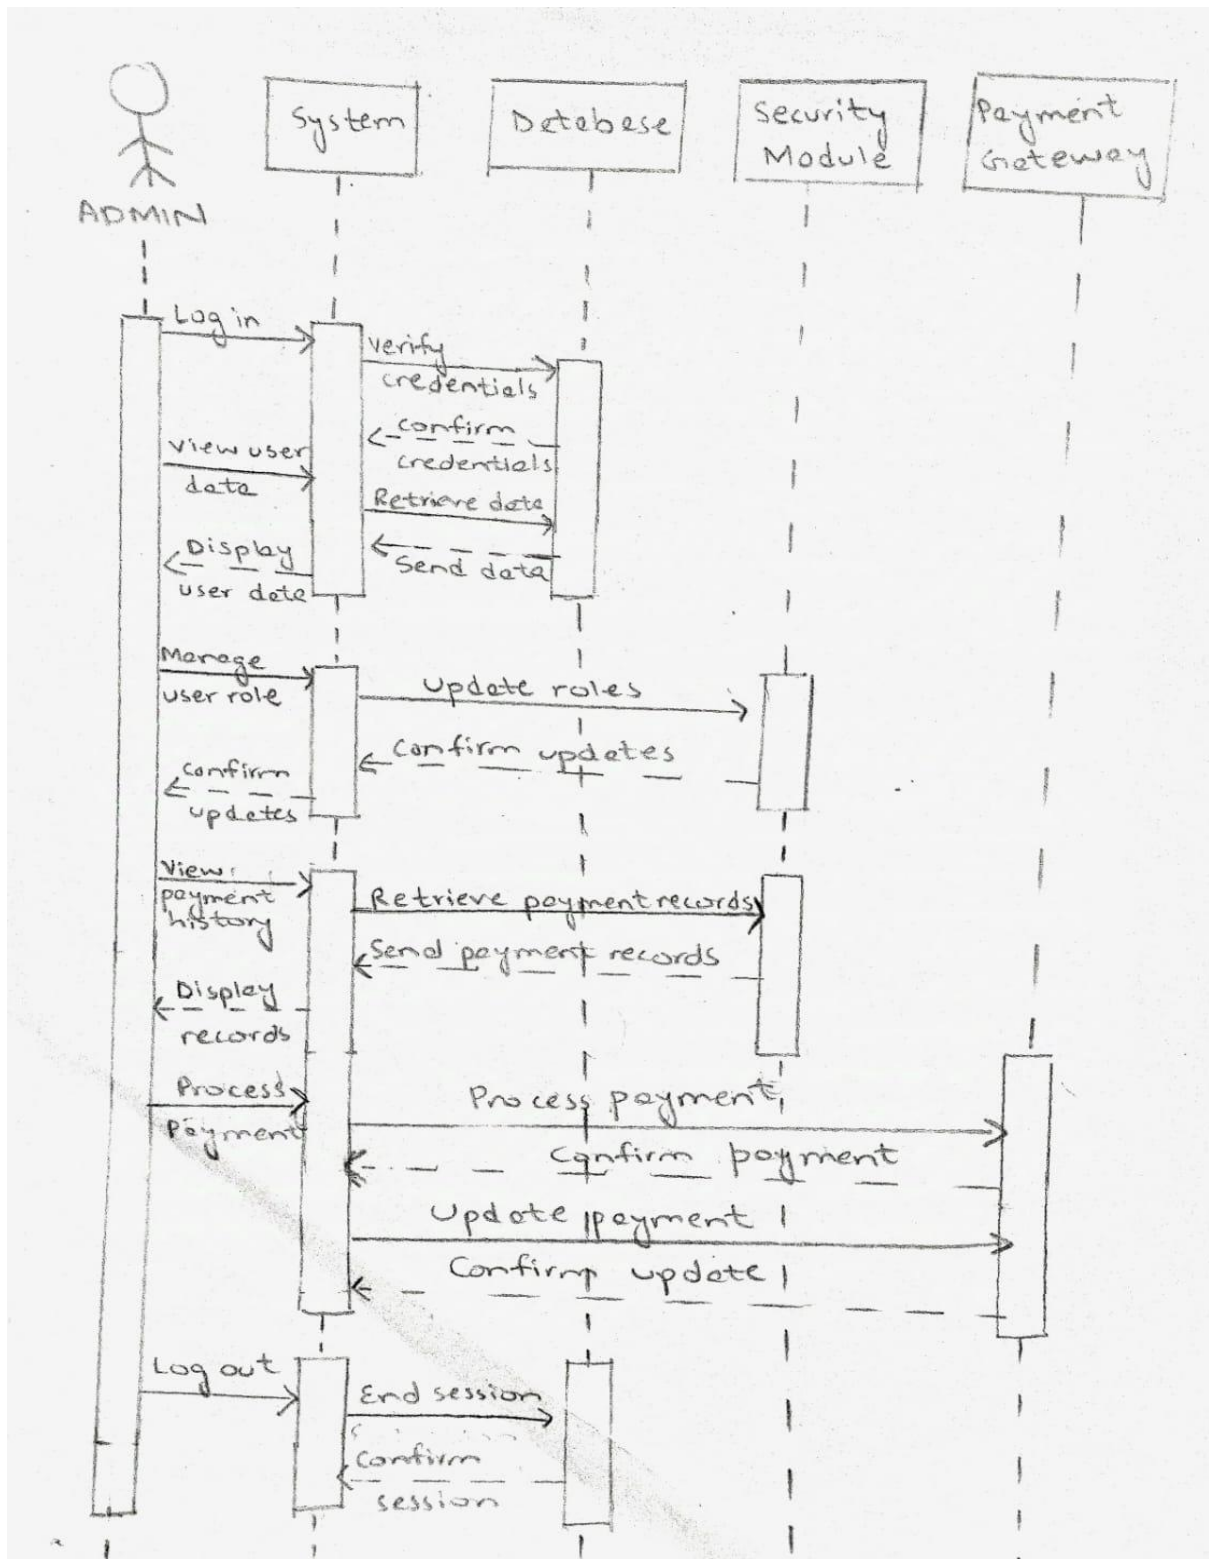 System
Database
Security
Module
Payment
Gateway
ADMIN
Log in
Verify
credentials
confirm
credentials
View user
data
Retrieve data
Display
user data
Send data
Manage
user role
Update roles
Confirm updates
confirm
updates
View
payment
history
Retrieve payment records
Send payment records
Display
records
Process
Payment
Process payment
Confirm payment
Update payment
Confirm update
Log out
End session
Confirm
session